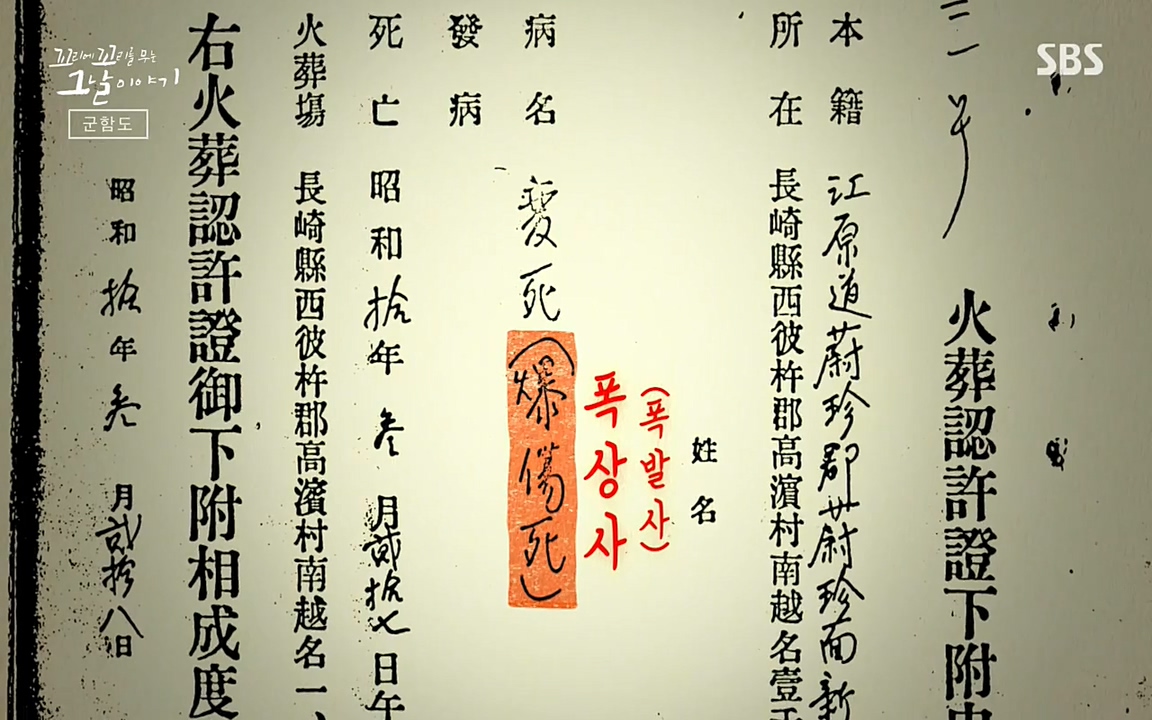 꼬리에 꼬리를 무는
그날 이야기
군함도
SBS
火葬認許證下附
本籍 江原道蔚珍郡蔚珍面新
所在 長崎縣西彼杵郡高濱村南越名壹
姓名
(폭발사)
폭상사
病名 變死(爆傷死)
發病
死亡 昭和拾年叁月貳拾七日午
火葬場 長崎縣西彼杵郡高濱村南越名一
右火葬認許證御下附相成度
昭和拾年叁月貳拾八日